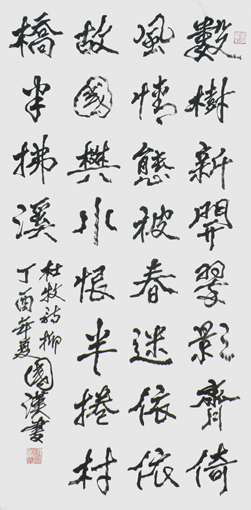 數樹新開翠影齊倚
風情態被春迷依依
故國樊川恨半掩村
橋半拂溪
杜牧詩柳
丁酉年夏國漢書